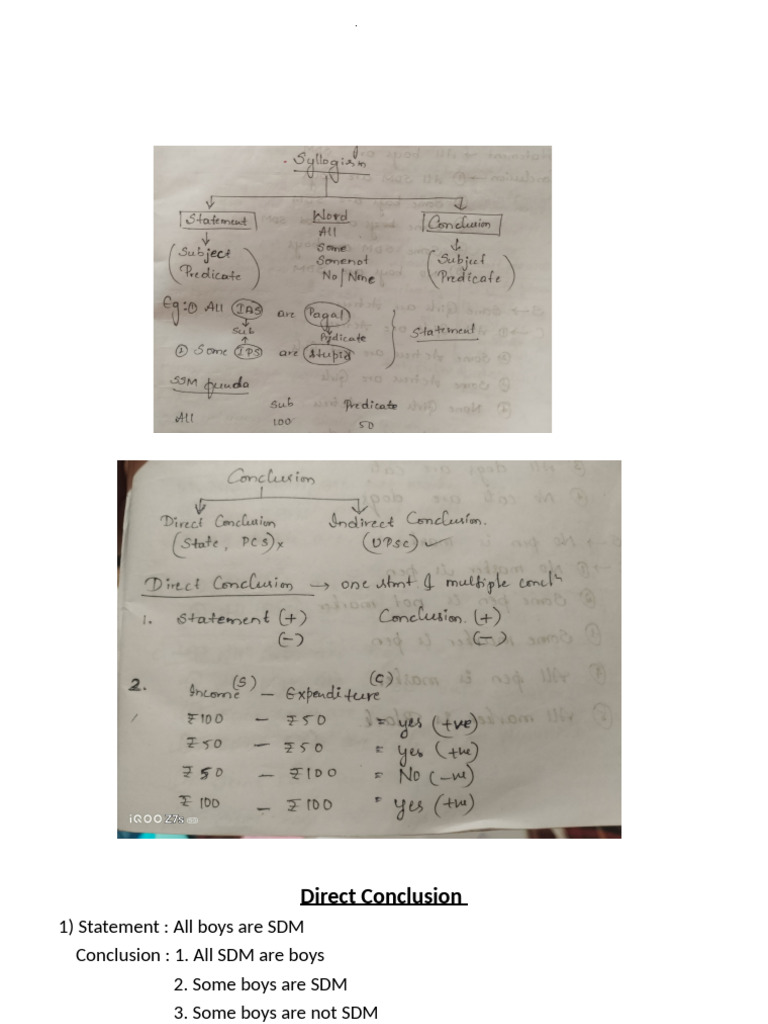 Syllogism
Statement Word Conclusion
All
(Subject Predicate) Some (Subject Predicate)
Somenot
No/None
Eg:① All IAS are Pagal
Sub Predicate Statement
② Some IPS are Stupid
SSM funda
Sub Predicate
All 100 50
Conclusion
Direct Conclusion Indirect Conclusion.
(State, PCS)x (UPSC)✓
Direct Conclusion → one stmt & multiple conclⁿ
1. Statement (+) Conclusion. (+)
(-) (-)
2. Income (S) – Expenditure (C)
₹100 – ₹50 = yes (+ve)
₹50 – ₹50 = yes (+ve)
₹50 – ₹100 = No (-ve)
₹100 – ₹100 = yes (+ve)
iQOO Z7s 5G
Direct Conclusion
1) Statement : All boys are SDM
Conclusion : 1. All SDM are boys
2. Some boys are SDM
3. Some boys are not SDM